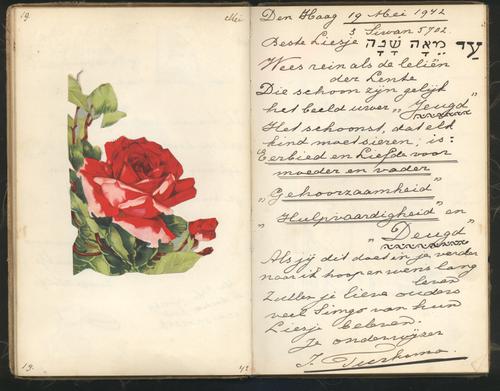 19.
Mei
19.
42
Den Haag 19 Mei 1942
3 Siwan 5702.
Beste Liesje עַד מֵאָה שָׁנָה
Wees rein als de leliën
der Lente
Die schoon zijn gelijk
het beeld uwer „Jeugd"
Het schoonst, dat elk
kind moet sieren, is:
Eerbied en Liefde voor
moeder en vader
„Gehoorzaamheid"
„Hulpvaardigheid" en
„Deugd"
Als jij dit doet in je verder
naar ik hoop en wens lang
leven
Zullen je lieve ouders
veel Simgo van hun
Liesje beleven.
Je onderwijzer